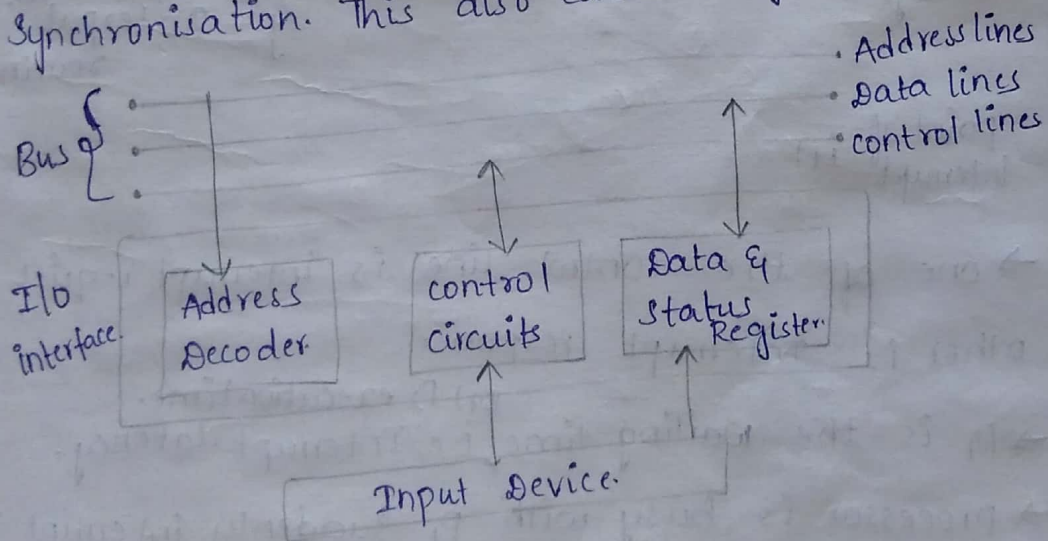 Synchronisation. This also
• Address lines
• Data lines
• control lines
Bus
I/O
interface.
Address
Decoder
control
circuits
Data &
status
Register.
Input Device.